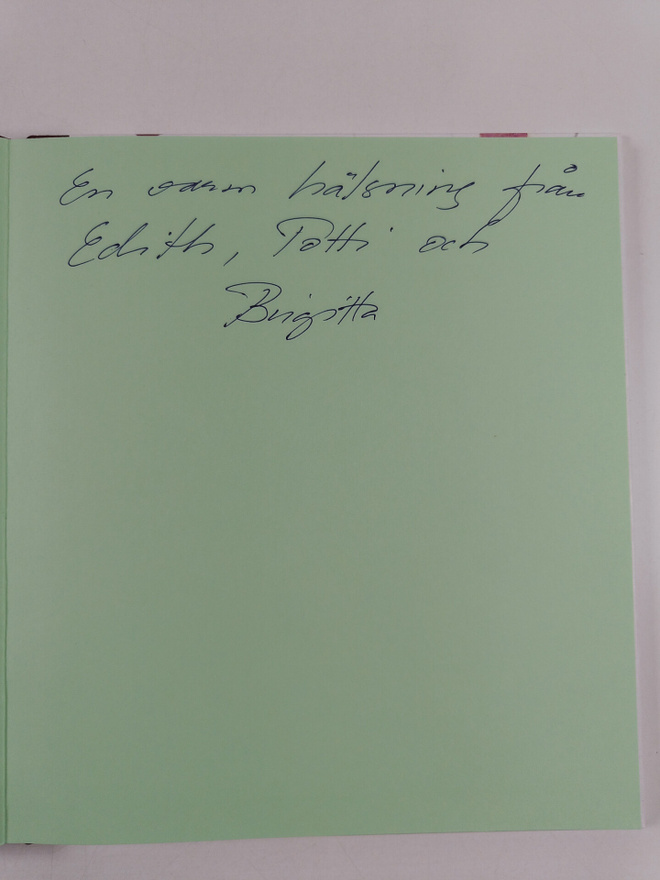 En varm hälsning från
Edith, Totti och
Birgitta